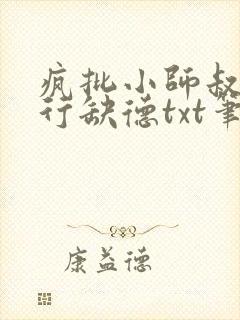 疯批小師叔
行缺德txt筆
康益德